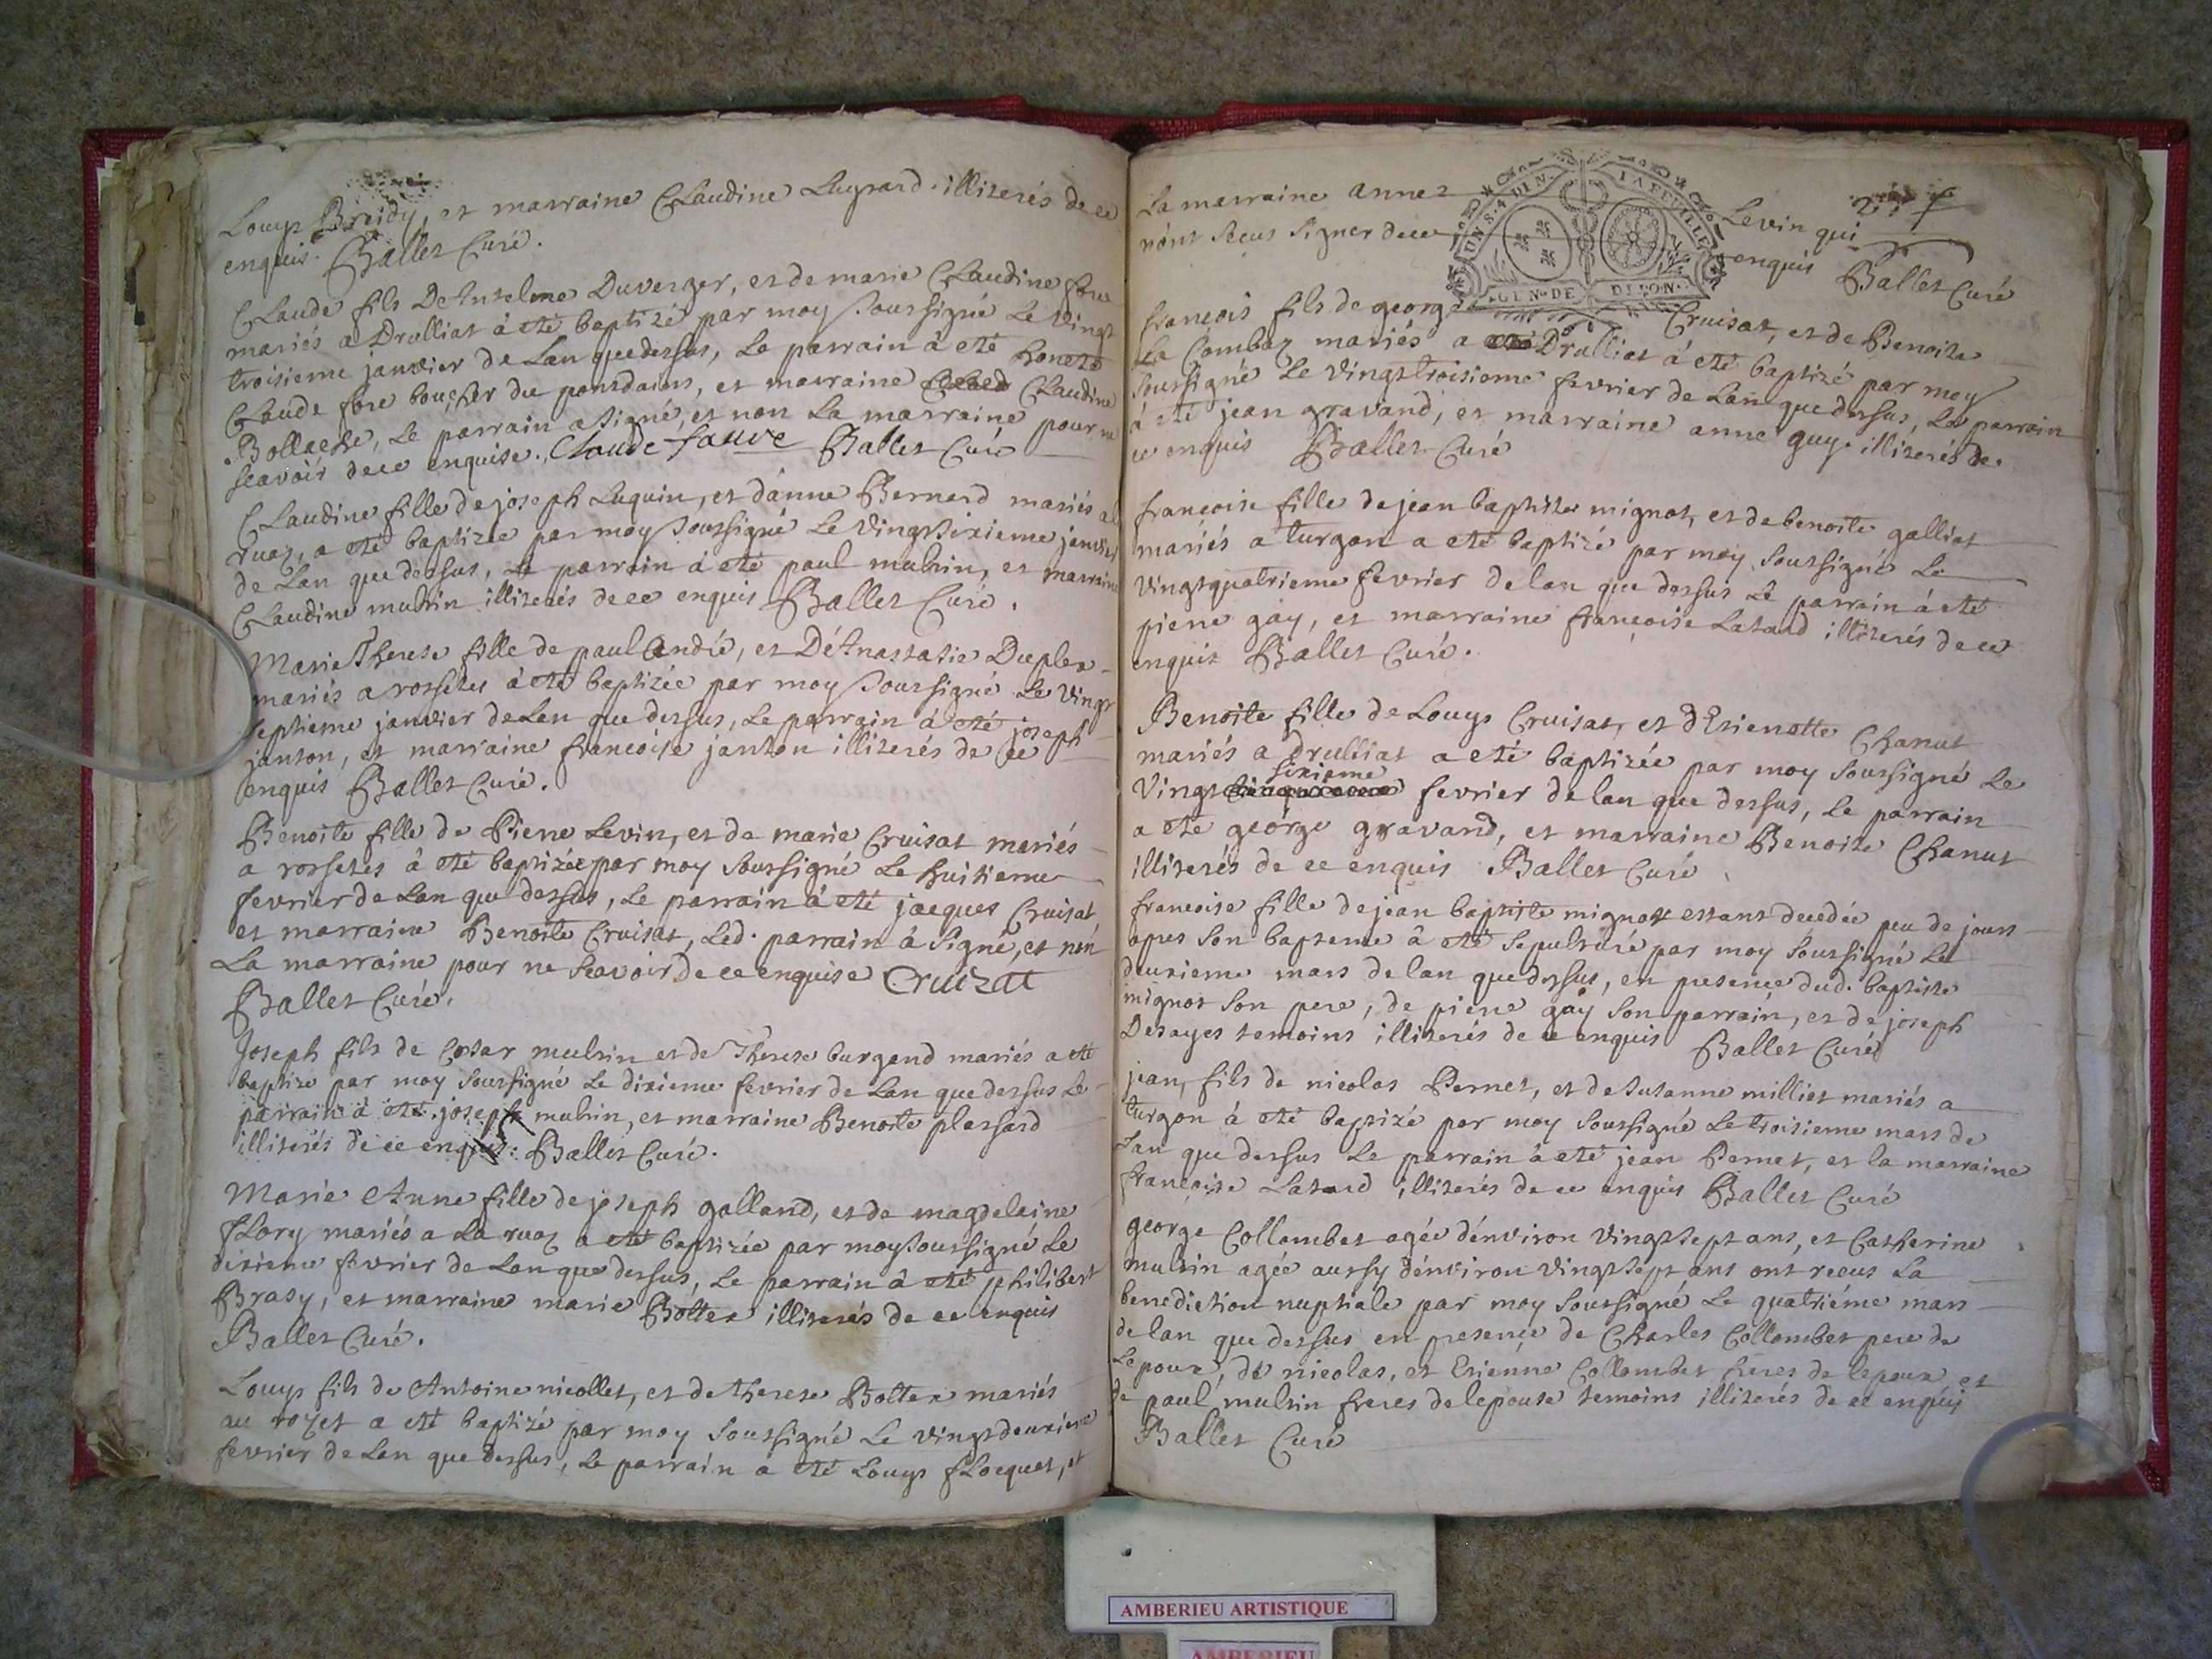 Louys Breidy, et marraine Claudine Lugrard illiterés de ce
enquis. Ballet Curé.
Claude fils De Anselme Duverger, et de marie Claudine fore
mariés a Drulliat à eté baptizé par moy soussigné Le vingt
troisieme janvier de Lan que dessus, Le parrain à eté honete
Claude fore boucher du pontdains, et marraine Claudine
Bollache, Le parrain a signé, et non La marraine pour ne
scavoir de ce enquise. Claude fauve Ballet Curé
Claudine fille de joseph Luquin, et dánne Bernard mariés a la
ruaz, a eté baptizée par moy soussigné Le vingtsixieme janvier
de Lan que dessus, Le parrain à eté paul mulrin, et marraine
Claudine mulrin illiterés de ce enquis Ballet Curé.
Marie Therese fille de paul André, et DéAnastasie Duplex
mariés a rossetes à eté baptizée par moy soussigné Le vingt
septieme janvier de Lan que dessus, Le parrain à eté joseph
janton, et marraine francoise janton illiterés de ce
enquis Ballet Curé.
Benoite fille de Piere Levin, et de marie Cruisat mariés
a rossetes à eté baptizée par moy soussigné Le huitieme
fevrier de Lan que dessus, Le parrain à eté jacques Cruisat
et marraine Benoite Cruisat, Led. parrain à signé, et nón
La marraine pour ne scavoir de ce enquise Cruizat
Ballet Curé.
Joseph fils de Cesar mulrin et de Therese burgend mariés a eté
baptizé par moy soussigné Le dixieme fevrier de Lan que dessus Le
parrain à eté joseph mulrin, et marraine Benoite plassard
illiterés de ce enquis: Ballet Curé.
Marie Anne fille de joseph galland, et de magdelaine
fLory mariés a La ruaz a eté baptizée par moy soussigné Le
dixieme fevrier de Lan que dessus, Le parrain à eté philibert
Brasy, et marraine marie Bottex illiterés de ce enquis
Ballet Curé.
Louys fils de Antoine nicollet, et de therese Bottex mariés
au rozet a eté baptizé par moy soussigné Le vingtdeuxieme
fevrier de Lan que dessus, Le parrain à eté Louys fLocquet, et
La marraine anne Levin qui
nónt sceus signer de ce enquis Ballet Curé
UN S. 4 DEN. LA FEUILLE
GEN. DE DIJON
francois fils de george Cruisat, et de Benoite
La Combaz mariés a Drulliat à eté baptizé par moy
soussigné Le vingttroisieme fevrier de Lan que dessus, Le parrain
à eté jean gravand, et marraine anne guy illiterés de
ce enquis Ballet Curé
francoise fille de jean baptiste mignot, et de benoite galliat
mariés a turgon a eté baptizé par moy soussigné Le
vingtquatrieme fevrier de lan que dessus Le parrain à eté
piere gay, et marraine francoise Latard illiterés de ce
enquis Ballet Curé.
Benoite fille de Louys Cruisat, et dEtienette Chanut
mariés a Drulliat a eté baptizée par moy soussigné Le
sixieme
vingt fevrier de lan que dessus, Le parrain
a eté george gravand, et marraine Benoite Chanut
illiterés de ce enquis Ballet Curé
francoise fille de jean baptiste mignot estant decedée peu de jours
apres son bapteme à eté sepulturé par moy soussigné Le
deuxieme mars de lan que dessus, en presence dud. baptiste
mignot son pere, de piere gay son parrain, et de joseph
Desayes temoins illiterés de ce enquis Ballet Curé
jean, fils de nicolas Pernet, et de Susanne milliet mariés a
turgon à eté baptizé par moy soussigné Le troisieme mars de
Lan que dessus Le parrain à eté jean Pernet, et la marraine
francoise Latard illiterés de ce enquis Ballet Curé
george Collombet agée dénviron vingtsept ans, et Catherine
mulrin agée aussy dénviron vingtsept ans ont receus La
benediction nuptiale par moy soussigné Le quatriéme mars
de lan que dessus en presence de Charles Collombet pere de
Lepoux, de nicolas, et Etiénne Collombet freres de lepoux et
de paul mulrin freres de lepouse temoins illiterés de ce enquis
Ballet Curé
AMBERIEU ARTISTIQUE
AMBERIEU